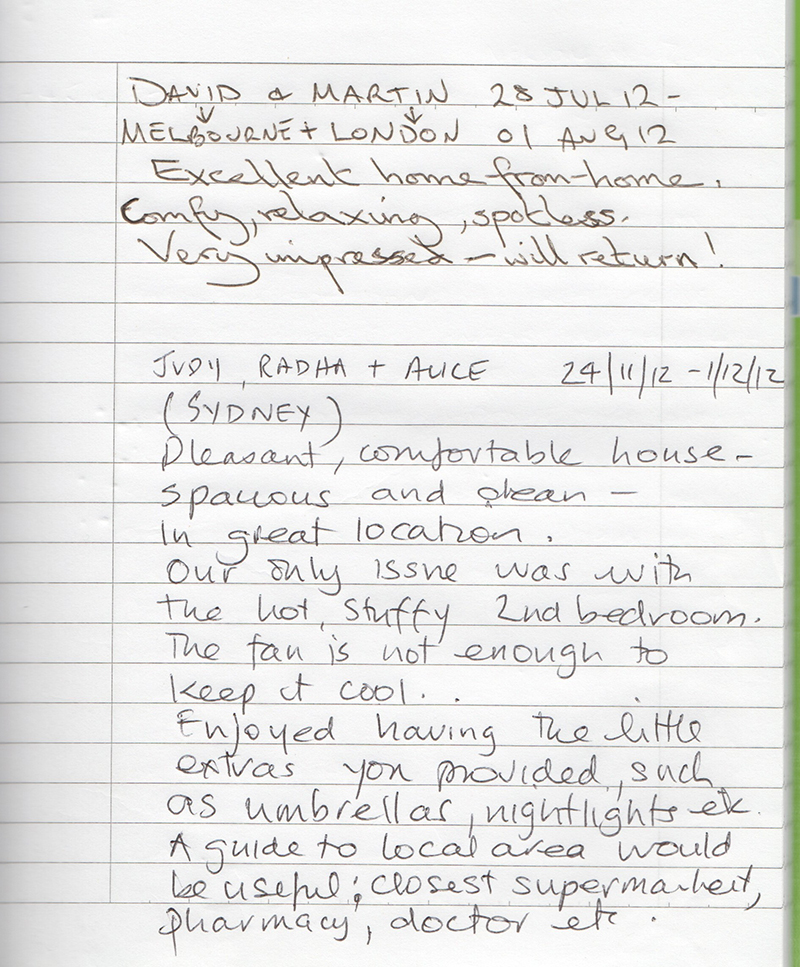 DAVID & MARTIN 28 JUL 12 -
MELBOURNE + LONDON 01 AUG 12
Excellent home-from-home.
Comfy, relaxing, spotless.
Very impressed - will return!
JUDY, RADHA + ALICE 24/11/12 - 1/12/12
(SYDNEY)
Pleasant, comfortable house -
spacious and clean -
In great location.
Our only issue was with
the hot, stuffy 2nd bedroom.
The fan is not enough to
keep it cool..
Enjoyed having the little
extras you provided, such
as umbrellas, nightlights etc.
A guide to local area would
be useful; closest supermarket,
pharmacy, doctor etc.